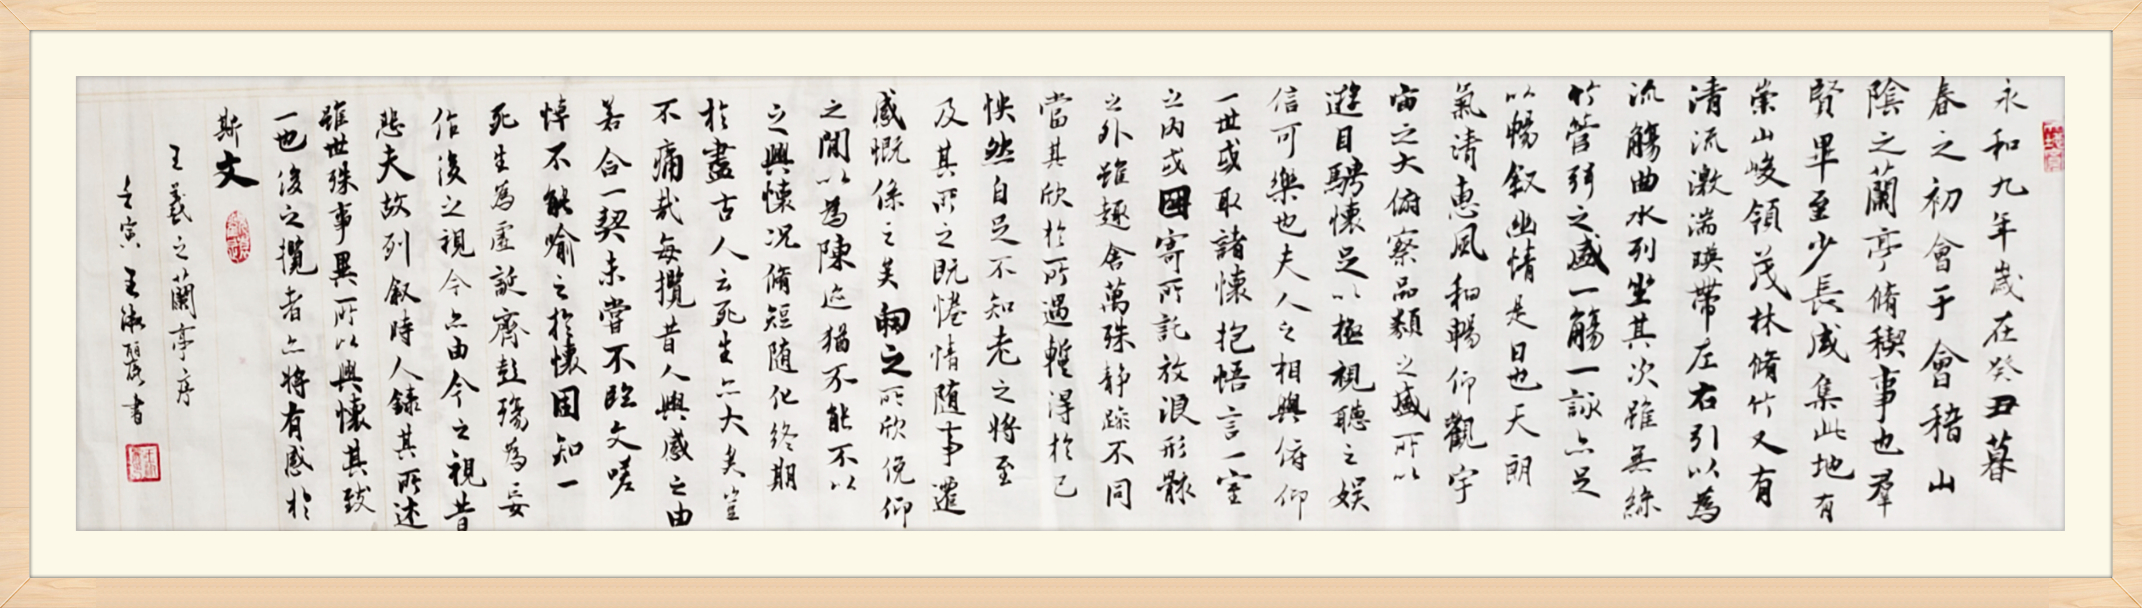 永和九年歲在癸丑暮
春之初會于會稽山
陰之蘭亭脩稧事也羣
賢畢至少長咸集此地有
崇山峻領茂林脩竹又有
清流激湍暎帶左右引以為
流觴曲水列坐其次雖無絲
竹管弦之盛一觴一詠亦足
以暢敘幽情是日也天朗
氣清惠風和暢仰觀宇
宙之大俯察品類之盛所以
遊目騁懷足以極視聽之娛
信可樂也夫人之相與俯仰
一世或取諸懷抱悟言一室
之內或因寄所託放浪形骸
之外雖趣舍萬殊静躁不同
當其欣於所遇暫得於己
怏然自足不知老之將至
及其所之既惓情隨事遷
感慨係之矣向之所欣俛仰
之閒以為陳迹猶不能不以
之興懷況脩短隨化終期
於盡古人云死生亦大矣豈
不痛哉每攬昔人興感之由
若合一契未嘗不臨文嗟
悼不能喻之於懷固知一
死生為虛誕齊彭殤為妄
作後之視今亦由今之視昔
悲夫故列敘時人錄其所述
雖世殊事異所以興懷其致
一也後之攬者亦將有感於
斯文
王羲之蘭亭序
壬寅王淑麗書